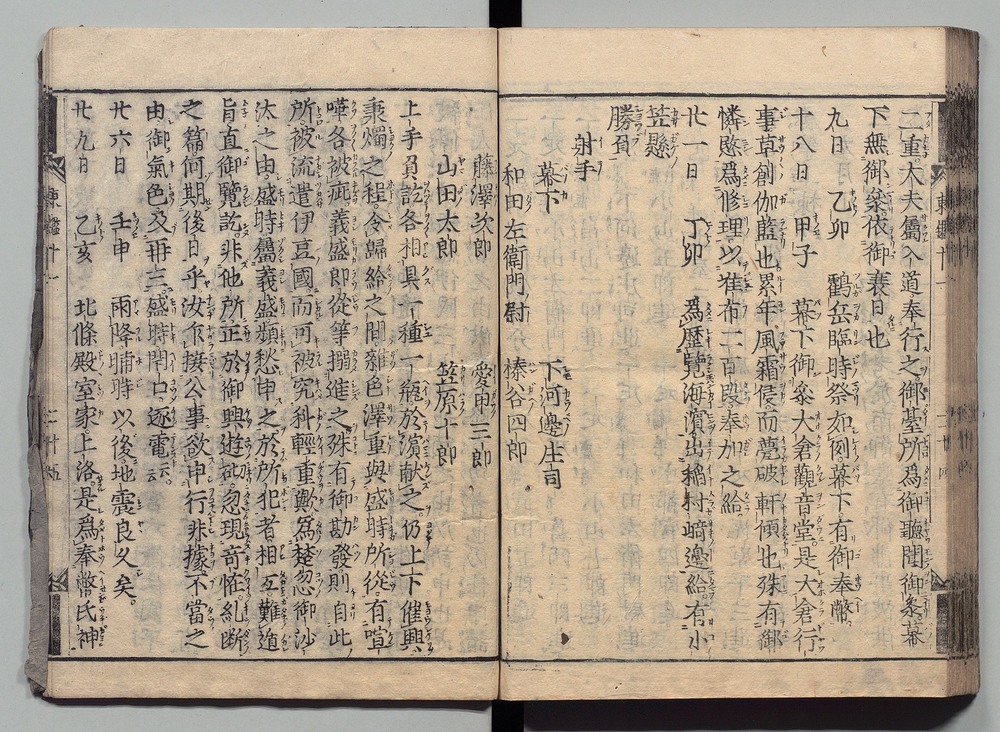 二重大夫屬入道奉行之御臺所爲御聽聞御參幕
下無御參依御衰日也
九日 乙卯 鶴岳臨時祭如例幕下有御奉幣
十八日 甲子 幕下御參大倉觀音堂是大倉行
事草創伽藍也累年風霜侵而甍破軒傾也殊有御
憐愍爲修理以准布二百段奉加之給
廿一日 丁卯 爲歷覽海濱出稻村﨑邊給有小
笠懸
勝負
射手
幕下 下河邊庄司
和田左衛門尉 榛谷四郎
藤澤次郎 愛甲三郎
山田太郎 笠原十郎
上手負訖各相具一種一瓶於濱獻之仍上下催興
秉燭之程令歸給之間雜色澤重與盛時所從有喧
嘩各被疵義盛即從等搦進之殊有御勘發則自此
所被流遣伊豆國而可被究科輕重歟爲楚忽御沙
汰之由盛時屬義盛頻愁申之於所犯者相互難遁
旨直御覽訖非他所正於御興遊砌忽現奇恠糺斷
之篇何期後日乎汝乍接公事欲申行非據不當之
由御氣色及再三盛時閇口逐電云云
廿六日 壬申 雨降晡時以後地震良久矣
廿九日 乙亥 北條殿室家上洛是爲奉幣氏神
東鑑十一
二十四
東鑑十一
二十五